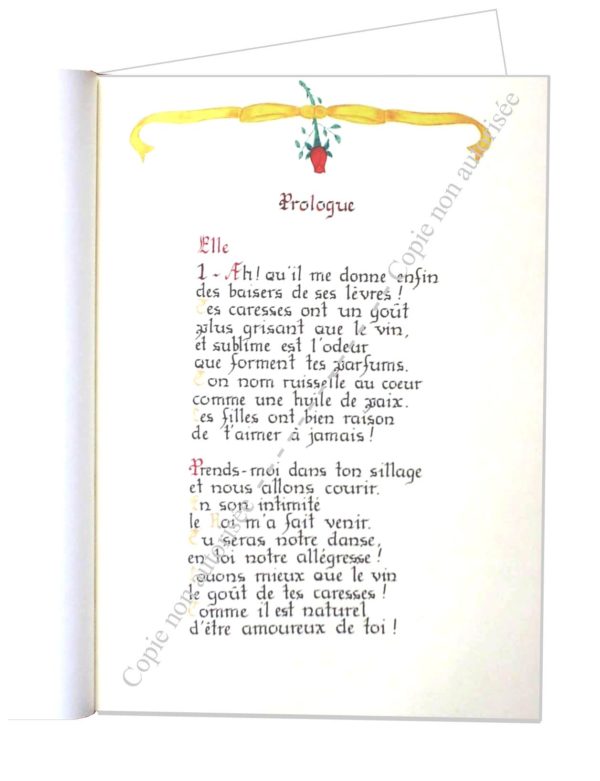 Prologue
Elle
1 - Ah! qu'il me donne enfin
des baisers de ses lèvres !
Tes caresses ont un goût
plus grisant que le vin,
et sublime est l'odeur
que forment tes parfums.
Ton nom ruisselle au coeur
comme une huile de paix.
Les filles ont bien raison
de t'aimer à jamais !
Prends-moi dans ton sillage
et nous allons courir.
En son intimité
le Roi m'a fait venir.
Tu seras notre danse,
en toi notre allégresse !
Louons mieux que le vin
le goût de tes caresses !
Comme il est naturel
d'être amoureux de toi !
Copie non autorisée - - - - - Copie non autorisée